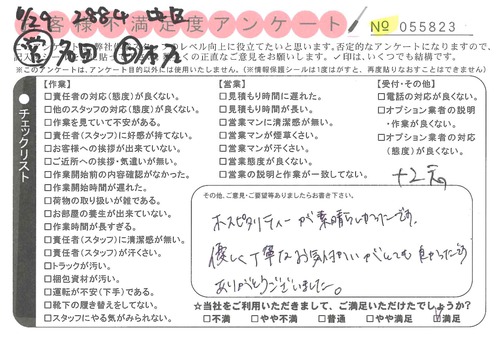 6/29 2884
お客様不満足度アンケート № 055823
レベル向上に役立てたいと思います。否定的なアンケートになりますので、
くの正直なご意見をお願いします。✓印は、いくつでも結構です。
※このアンケートは、アンケート目的以外には使用いたしません。(※情報保護シールは1度がすと、再度貼りなおすことはできません)
チェックリスト
【作業】
□責任者の対応(態度)が良くない。
□他のスタッフの対応(態度)が良くない。
□作業を見ていて不安がある。
□責任者(スタッフ)に好感が持てない。
□お客様への挨拶が出来ていない。
□ご近所への挨拶・気遣いが無い。
□作業開始前の内容確認がなかった。
□作業開始時間が遅れた。
□荷物の取り扱いが雑である。
□お部屋の養生が出来ていない。
□作業時間が長すぎる。
□責任者(スタッフ)に清潔感が無い。
□責任者(スタッフ)が汗くさい。
□トラックが汚い。
□梱包資材が汚い。
□運転が不安(下手)である。
□靴下の履き替えをしてない。
□スタッフにやる気がみられない。
【営業】
□見積もり時間に遅れた。
□見積もり時間が長い。
□営業マンに清潔感が無い。
□営業マンが煙草くさい。
□営業マンが汗くさい。
□営業態度が良くない。
□営業の説明と作業が一致してない。
【受付・その他】
□電話の対応が良くない。
□オプション業者の説明
・作業が良くない。
□オプション業者の対応
(態度)が良くない。
その他、ご意見・ご要望等ありましたらお書き下さい。
ホスピタリティーが素晴らしかったです。
優しく丁寧なお気づかいがとても良かったです
ありがとうございました。
☆当社をご利用いただきまして、ご満足いただけたでしょうか?
□不満 □やや不満 □普通 □やや満足 ☑満足